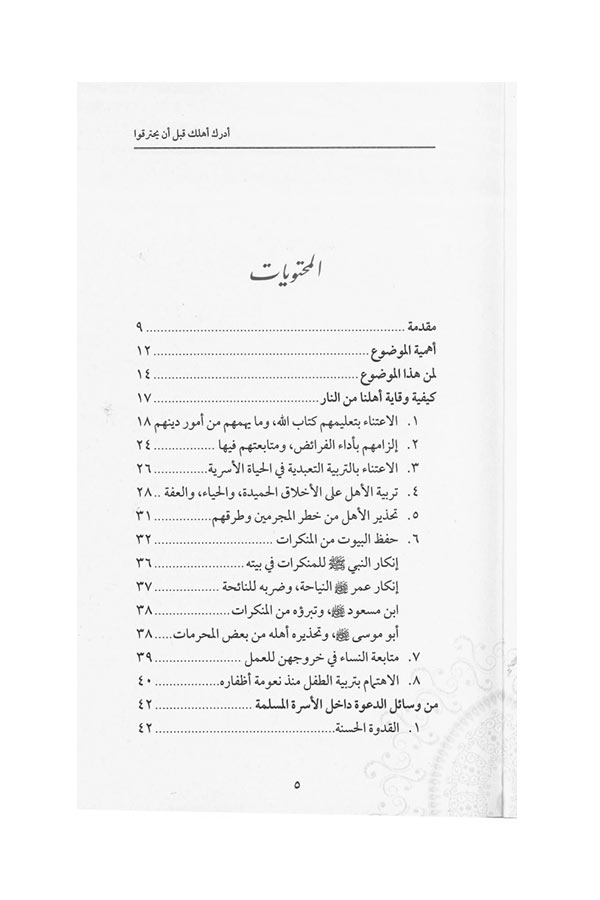 أدرك أهلك قبل أن يحترقوا
المحتويات
مقدمة ................................ ٩
أهمية الموضوع ................................ ١٢
لمن هذا الموضوع ................................ ١٤
كيفية وقاية أهلنا من النار ................................ ١٧
١. الاعتناء بتعليمهم كتاب الله، وما يهمهم من أمور دينهم ١٨
٢. إلزامهم بأداء الفرائض، ومتابعتهم فيها ................ ٢٤
٣. الاعتناء بالتربية التعبدية في الحياة الأسرية ............... ٢٦
٤. تربية الأهل على الأخلاق الحميدة، والحياء، والعفة .. ٢٨
٥. تحذير الأهل من خطر المجرمين وطرقهم ................ ٣١
٦. حفظ البيوت من المنكرات ................................ ٣٢
إنكار النبي ﷺ للمنكرات في بيته ........................ ٣٦
إنكار عمر النياحة، وضربه للنائحة .................. ٣٧
ابن مسعود، وتبرؤه من المنكرات ........................ ٣٨
أبو موسى، وتحذيره أهله من بعض المحرمات ..... ٣٨
٧. متابعة النساء في خروجهن للعمل ........................ ٣٩
٨. الاهتمام بتربية الطفل منذ نعومة أظفاره .................. ٤٠
من وسائل الدعوة داخل الأسرة المسلمة ........................ ٤٢
١. القدوة الحسنة ................................ ٤٢
٥